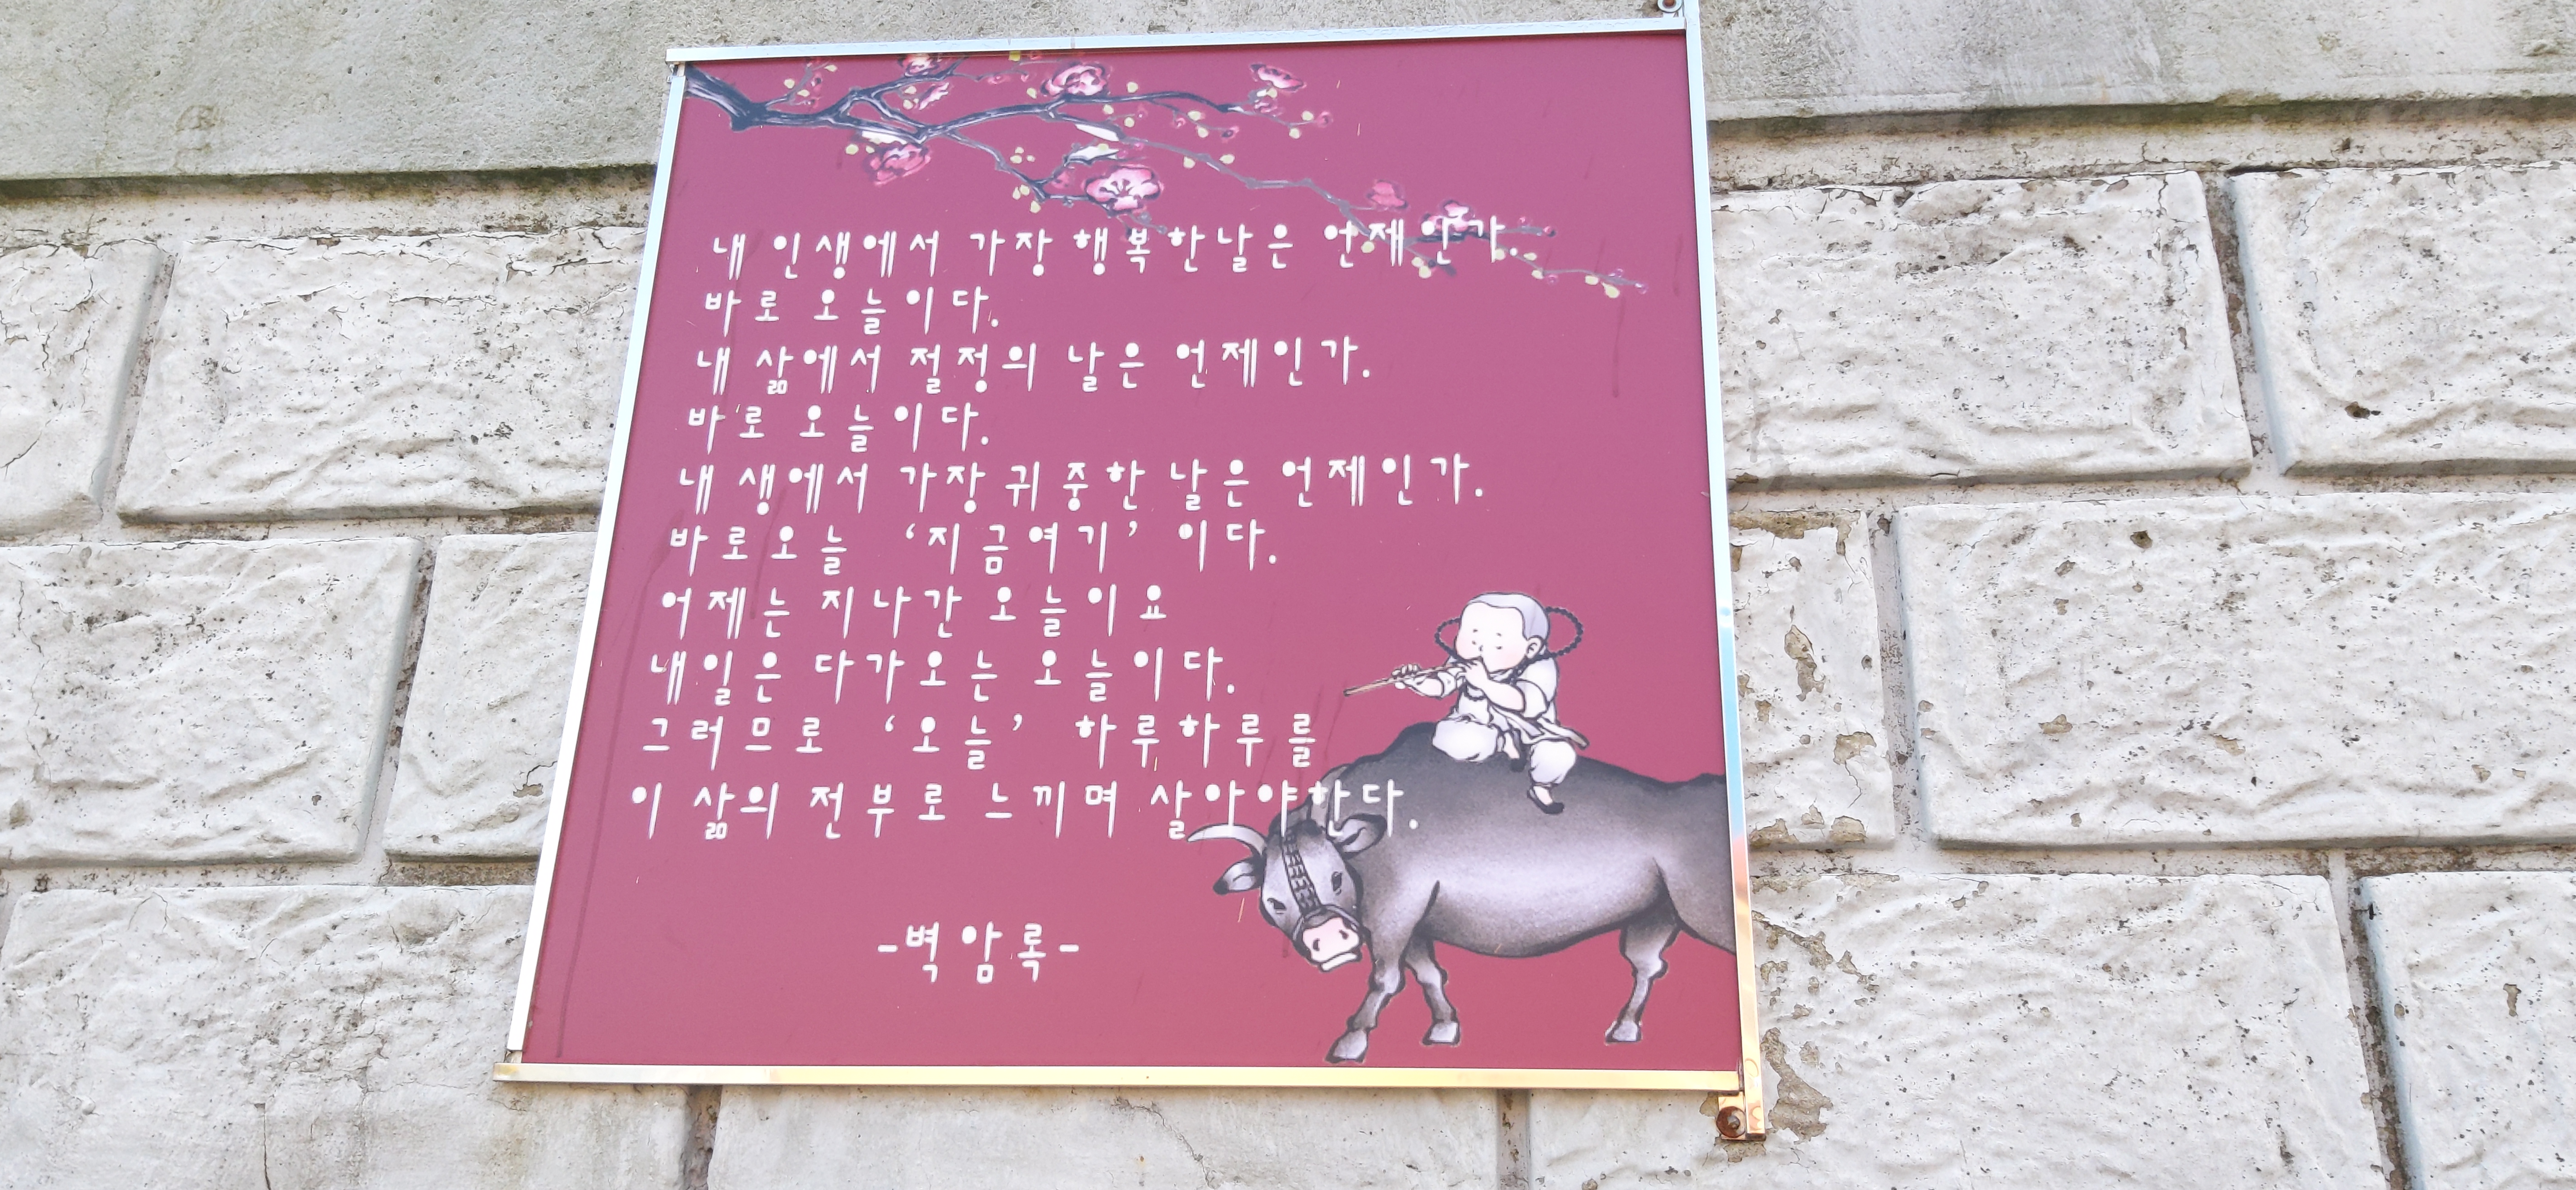 내 인생에서 가장 행복한날은 언제인가.
바로 오늘이다.
내 삶에서 절정의 날은 언제인가.
바로 오늘이다.
내 생에서 가장귀중한 날은 언제인가.
바로오늘 ‘지금여기’ 이다.
어제는 지나간 오늘이요
내일은 다가오는 오늘이다.
그러므로 ‘오늘’ 하루하루를
이 삶의 전부로 느끼며 살아야한다.
-벽암록-